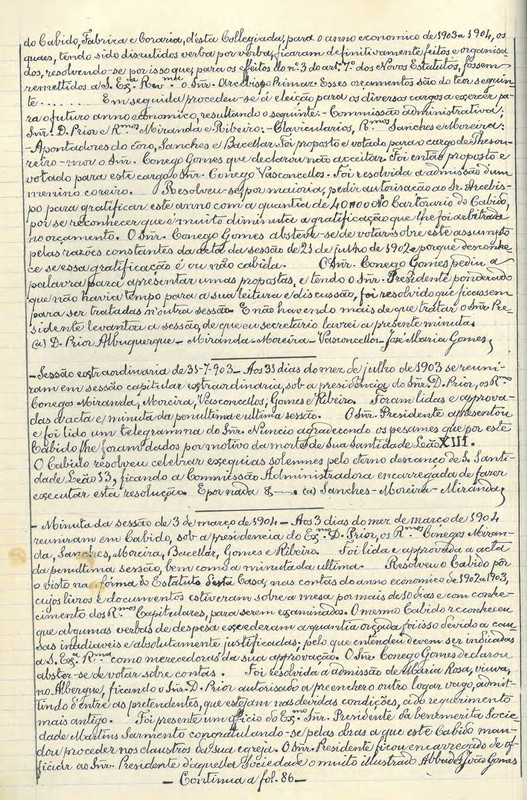 do Cabido, Fabrica e Coraria, d'esta Collegiada, para o anno economico de 1903 a 1904, os
quaes, tendo sido discutidos verba por verba, ficaram definitivamente feitos e organisa-
dos, resolvendo-se por isso que, para os effeitos do nº 3 do artº 7º dos Novos Estatutos, fossem
remettidos a S. Exª Revmª o Snr. Arcebispo Primaz. Esses orçamentos são do teor seguin-
te ........ Em seguida procedeu-se á eleição para os diversos cargos a exercer pa-
ra o futuro anno economico, resultando o seguinte: - Commissão administrativa,
Snr. D. Prior e Rmos Miranda e Ribeiro: - Clavicularios, Rmos Sanches e Moreira:
- Apontadores do côro, Sanches e Bacellar. Foi proposto e votado para o cargo de Thesou-
reiro-mor o Snr. Conego Gomes que declarou não acceitar. Foi então proposto e
votado para este cargo o Snr. Conego Vasconcellos. Foi resolvida a admissão d'um
menino coreiro. Resolveu-se, por maioria, pedir autorisação ao Sr. Arcebis-
po para gratificar este anno com a quantia de 40#000 o Cartorario do Cabido,
por se reconhecer que é muito diminuta a gratificação que lhe foi arbitrada
no orçamento. O Snr. Conego Gomes absteve-se de votar sobre este assumpto
pelas razões constantes da acta da sessão de 23 de julho de 1902 e porque desconhe-
ce se essa gratificação é ou não cabida. O Snr. Conego Gomes pediu a
palavra para apresentar umas propostas, e tendo o Snr. Presidente ponderado
que não havia tempo para a sua leitura e discussão, foi resolvido que ficassem
para ser tratadas n'outra sessão. E não havendo mais de que tratar o Snr. Pre-
sidente levantou a sessão, de que eu secretario lavrei a presente minuta.
(a) D. Prior Albuquerque - Miranda - Moreira - Vasconcellos - José Maria Gomes,
- Sessão extraordinaria de 31-7-903 - Aos 31 dias do mez de julho de 1903 se reuni-
ram em sessão capitular extraordinaria, sob a presidencia do Snr. D. Prior, os Rmos
Conegos Miranda, Moreira, Vasconcellos, Gomes e Ribeiro. Foram lidas e approva-
das a acta e minuta da penultima e ultima sessão. O Snr. Presidente apresentou
e foi lido um telegramma do Snr. Nuncio agradecendo os pesames que por este
Cabido lhe foram dados por motivo da morte de Sua Santidade Leão XIII.
O Cabido resolveu celebrar exequias solemnes pelo eterno descanço de S. Santi-
dade Leão 13, ficando a Commissão Administradora encarregada de fazer
executar esta resolução. E por nada &-. (a) Sanches - Moreira - Miranda,
- Minuta da sessão de 3 de março de 1904 - Aos 3 dias do mez de março de 1904
reuniram em Cabido, sob a presidencia do Exmº D. Prior, os Rmos Conegos Miran-
da, Sanches, Moreira, Bacellar, Gomes e Ribeiro. Foi lida e approvada a acta
da penultima sessão, bem como a minuta da ultima. Resolveu o Cabido pôr
o visto na forma do Estatuto d'esta Casa, nas contas do anno economico de 1902 a 1903,
cujos livros e documentos estiveram sobre a mesa por mais de 30 dias e com conhe-
cimento dos Rmos Capitulares, para serem examinados. O mesmo Cabido reconheceu
que algumas verbas de despesa excederam a quantia orçada foi isso devido a cau-
sas inadiaveis e absolutamente justificadas, pelo que entendeu devem ser indicadas
a S. Exª Rmª como merecedoras da sua approvação. O Snr. Conego Gomes declarou
abster-se de votar sobre contas. Foi resolvida a admissão de Maria Rosa, viuva,
no Albergue, ficando o Snr. D. Prior autorisado a preencher o outro logar vago, admit-
tindo d'entre as pretendentes, que estejam nas devidas condições, a do requerimento
mais antigo. Foi presente um officio do Exmº Snr. Presidente da benemerita Socie-
dade Martins Sarmento congratulando-se pelas obras a que este Cabido man-
dou proceder nos claustros da sua egreja. O Snr. Presidente ficou encarregado de of-
ficiar ao Snr. Presidente d'aquella Sociedade o muito illustrado Abbade João Gomes
- Continua a fol. 86 -